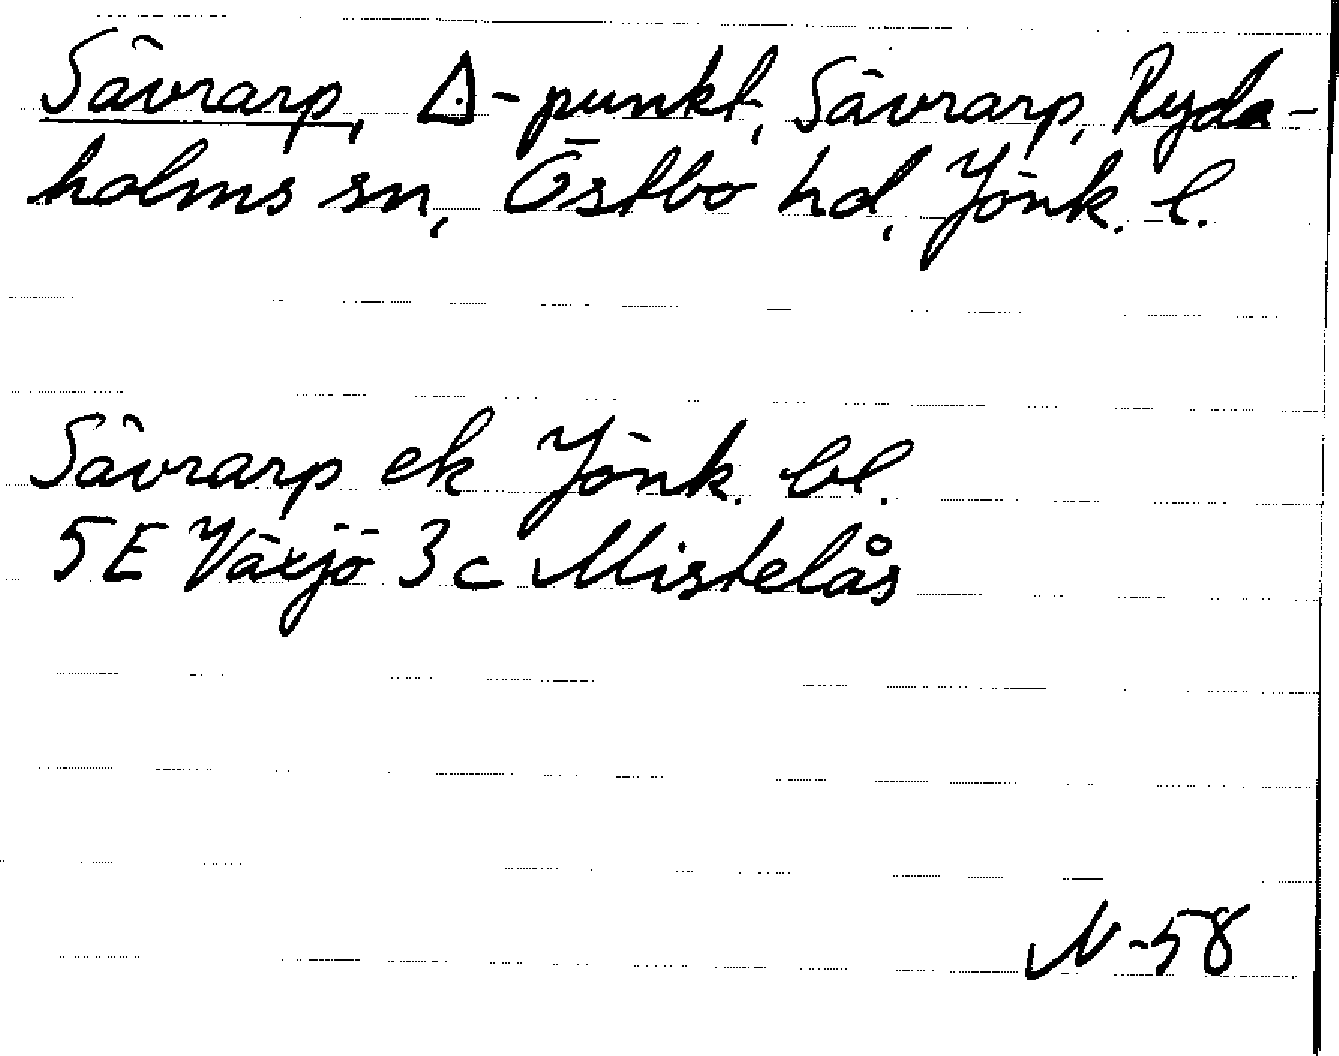 Sävrarp, △-punkt, Sävrarp, Ryda-
holms sn, Östbo hd, Jönk. l.
Sävrarp ek Jönk. bl.
5E Växjö 3c Mistelås
N-58